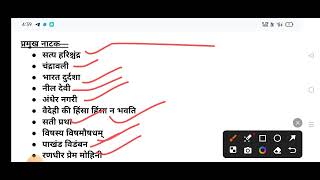 4:59
प्रमुख नाटक—
• सत्य हरिश्चंद्र
• चंद्रावली
• भारत दुर्दशा
• नील देवी
• अंधेर नगरी
• वैदेही की हिंसा हिंसा न भवति
• सती प्रथा
• विषस्य विषमौषधम्
• पाखंड विडंबन
• रणधीर प्रेम मोहिनी